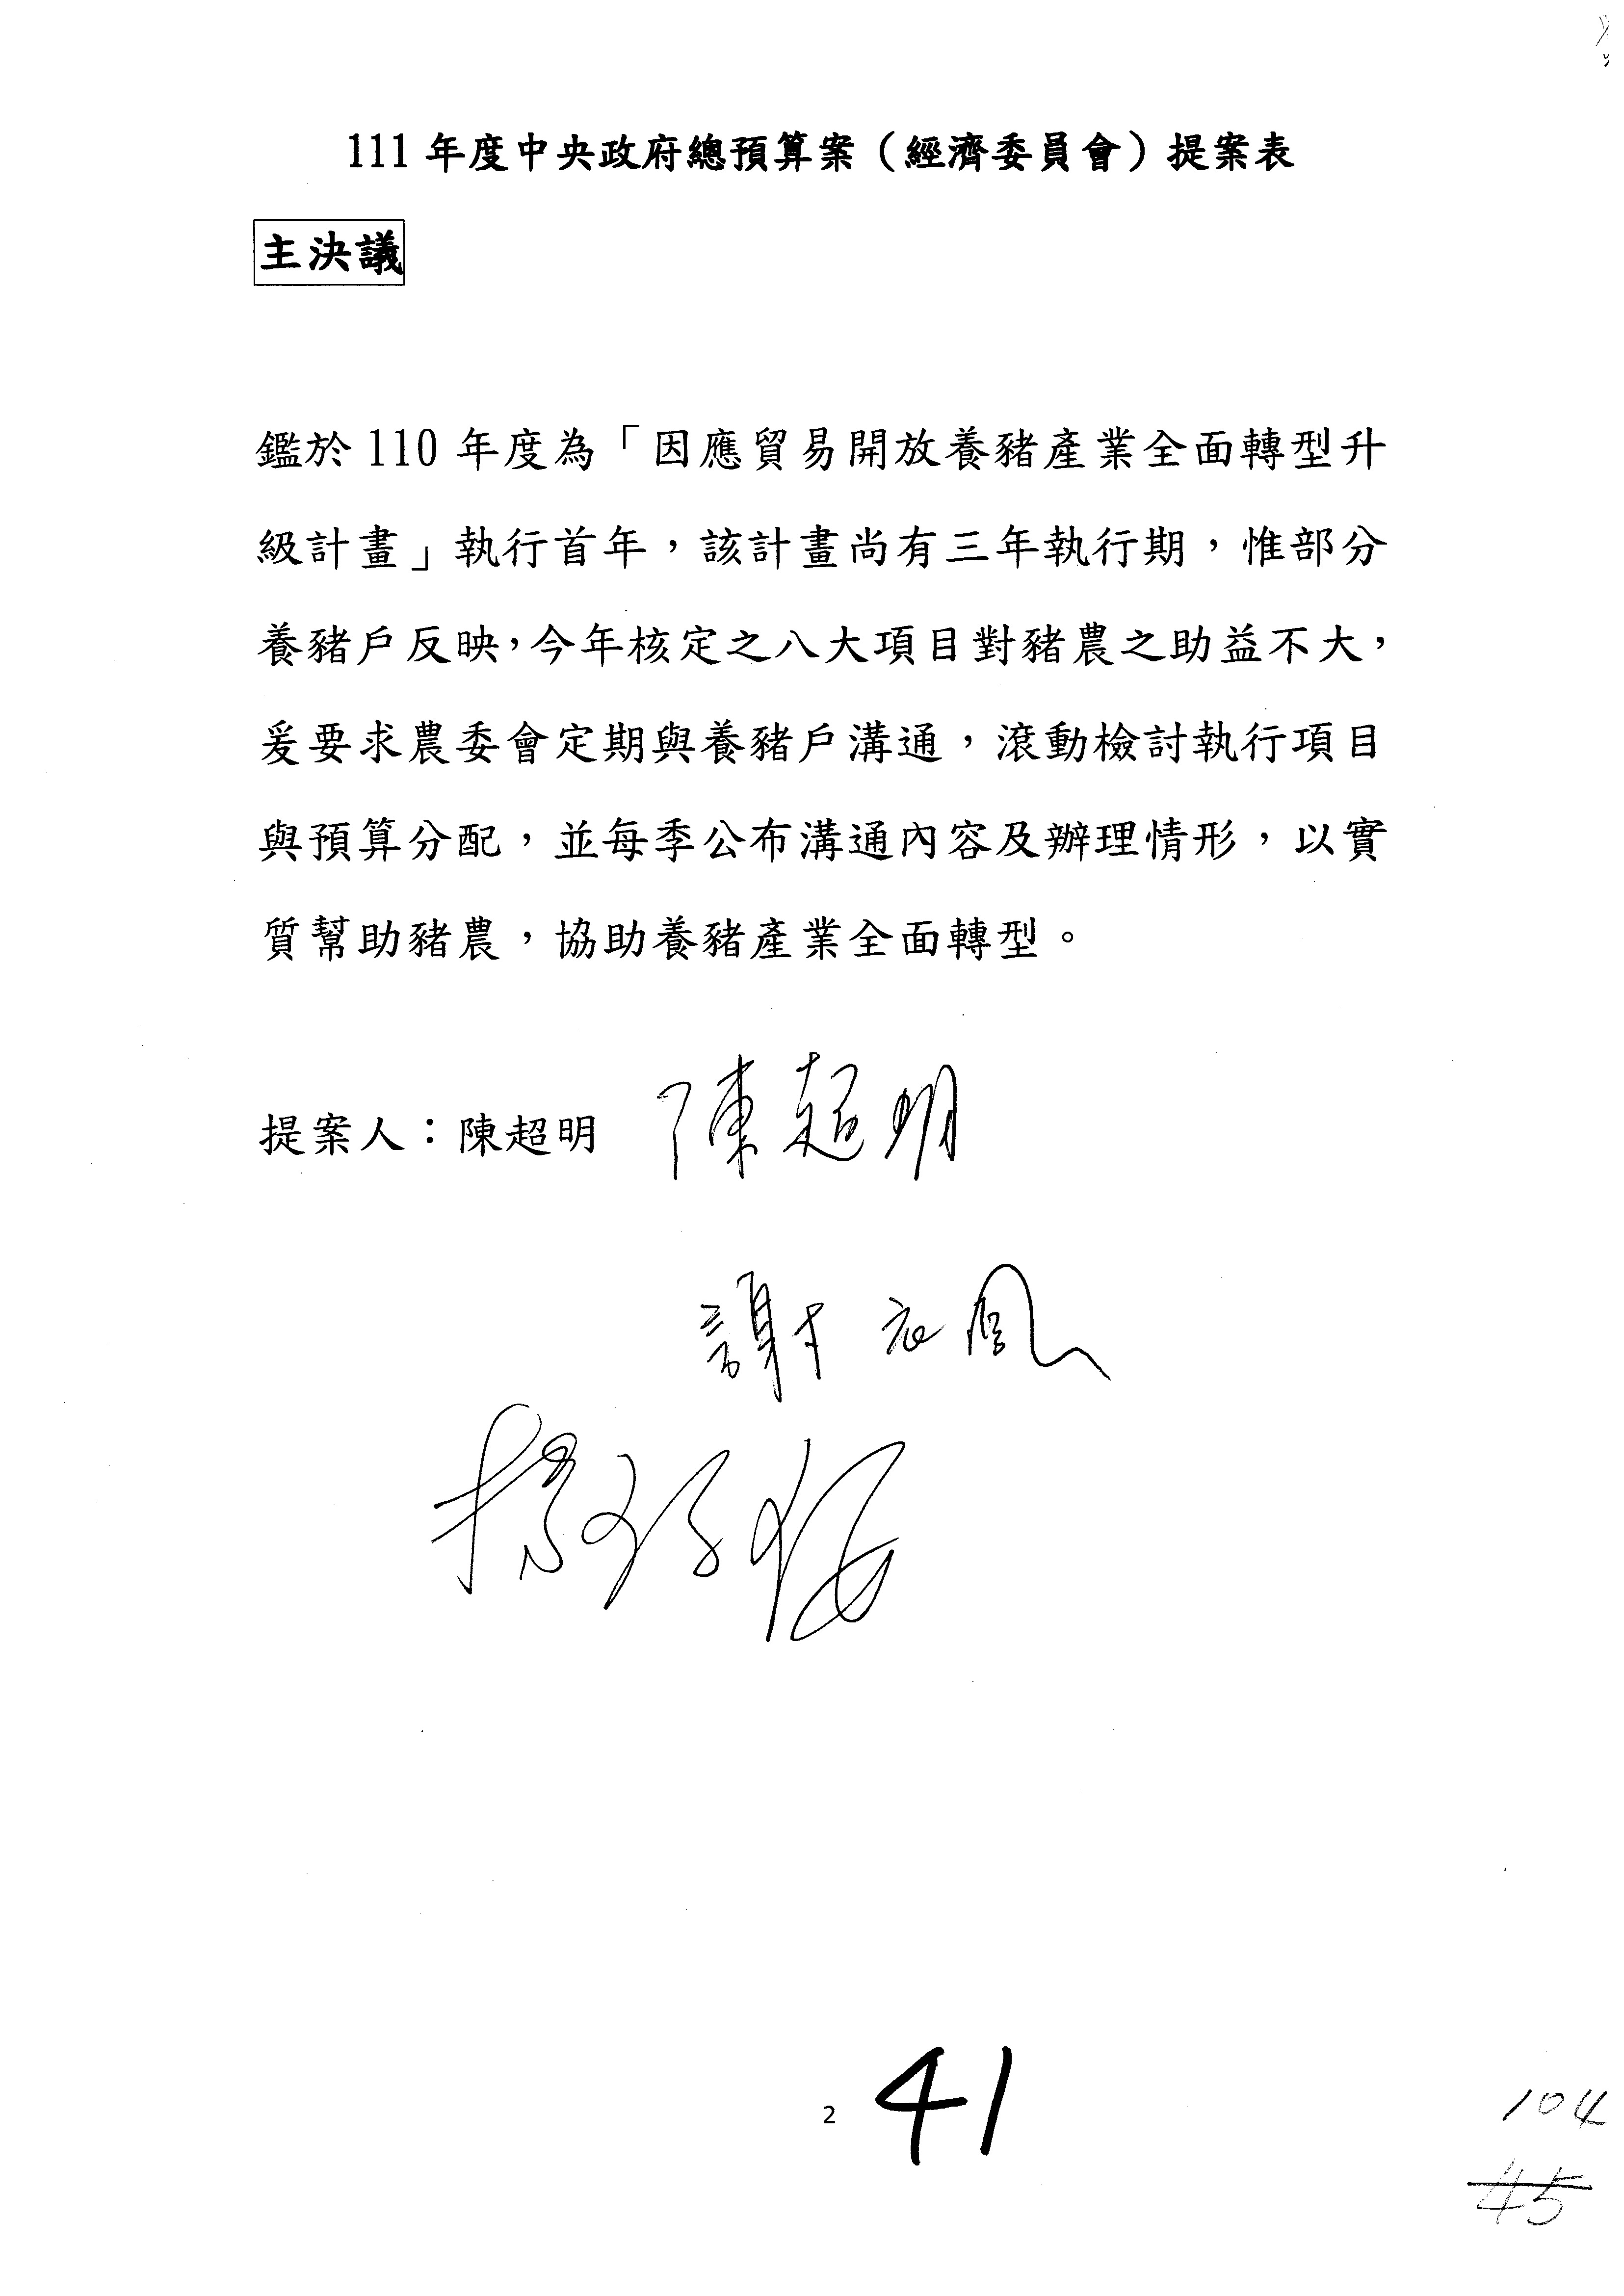 111 年度中央政府總預算案（經濟委員會）提案表
主決議
鑑於 110 年度為「因應貿易開放養豬產業全面轉型升
級計畫」執行首年，該計畫尚有三年執行期，惟部分
養豬戶反映，今年核定之八大項目對豬農之助益不大，
爰要求農委會定期與養豬戶溝通，滾動檢討執行項目
與預算分配，並每季公布溝通內容及辦理情形，以實
質幫助豬農，協助養豬產業全面轉型。
提案人：陳超明 陳超明
謝衣鳳
2 41
104
45